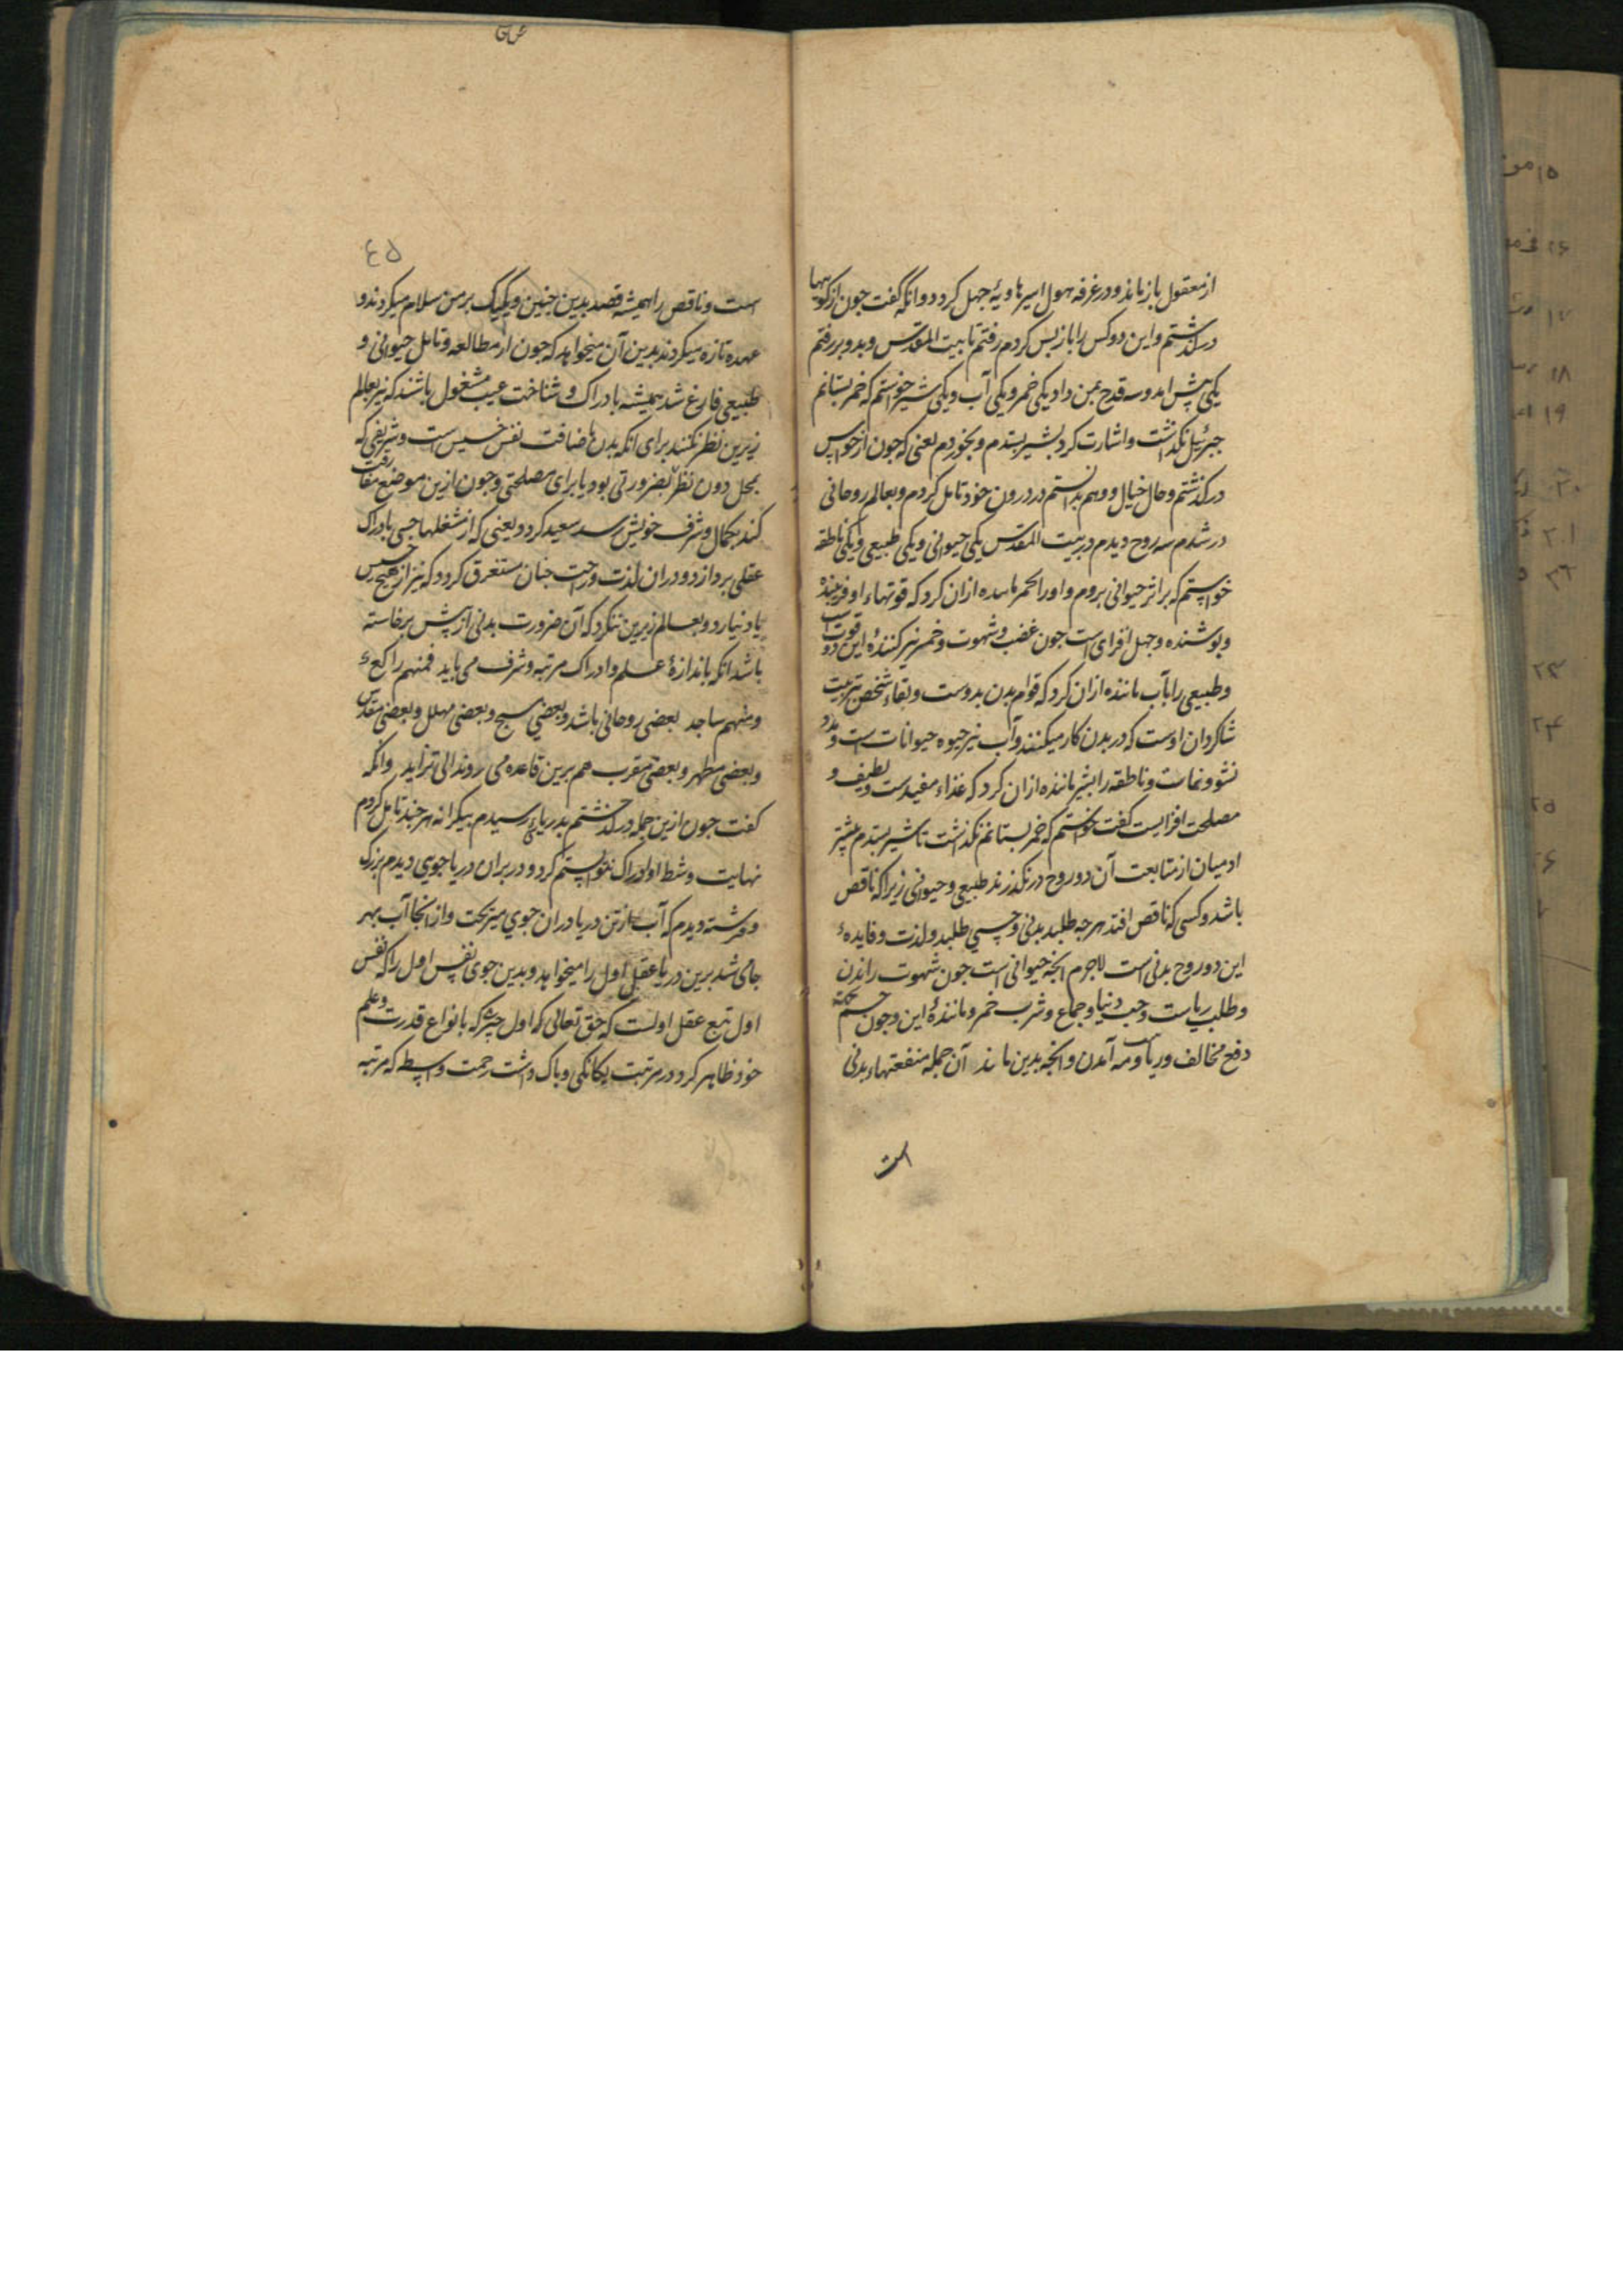 از معقول باز ماند و در غرفه هول اسیر هاویهٔ جهل کردد و انکه کفت جون از کوهها
درکذشتم و این دو کس را باز پس کردم رفتم تا بیت المقدس و بدو بر رفتم
یکی پیش امد و سه قدح بمن داد یکی خمر و یکی آب و یکی شیر خواستم که خمر بستانم
جبرئیل نکذاشت و اشارت کرد بشیر بستدم و بخوردم یعنی که جون از حواس
درکذشتم و حال خیال و وهم بدانستم در درون خود تامل کردم و بعالم روحانی
در شدم سه روح دیدم در بیت المقدس یکی حیوانی و یکی طبیعی و یکی ناطقه
خواستم که بر اثر حیوانی بروم و او را بخمر مانده ازان کرد که قوتهاء او فریبنده
و پوشنده و جهل افزای است جون غضب و شهوت و خمر نیز کنندهٔ این دو قوت است
و طبیعی را بآب ماننده ازان کرد که قوام بدن بدوست و بقاء شخص بتربیت
شاکردان اوست که در بدن کار میکنند و آب نیز حیوه حیوانات است و مدد
نشو و نماست و ناطقه را بشیر ماننده ازان کرد که غذاء مفیدست و لطیف و
مصلحت افزایست کفت خواستم که خمر بستانم نکذاشت تا شیر بستدم بیشتر
ادمیان از متابعت آن دو روح در نکذرند طبیعی و حیوانی زیرا که ناقص
باشد و کسی که ناقص افتد هرجه طلبد بدنی و حسی طلبد و لذت و فایدهٔ
این دو روح بدنی است لاجرم انجه حیوانی است جون شهوت راندن
و طلب ریاست و حب دنیا و جماع و شرب خمر و مانندهٔ این و جون خشم
دفع مخالف و آمدن و انجه بدین ماند آن جمله منفعتهاء بدنی
است
۴۵
است و ناقص را همیشه قصد بدین جنین و یکیک بر من سلام میکردند و
عهده تازه میکردند بدین آن میخواهد که جون از مطالعه و تامل حیوانی و
طبیعی فارغ شد همیشه بادراک و شناخت غیب مشغول باشند که نیز بعالم
زیرین نظر نکنند برای انکه بدن باضافت نفس خسیس است و شریفی که
بمحل دون نظر بضرورتی بود یا برای مصلحتی و جون ازین موضع مفارقت
کند بکمال و شرف خویش رسد سعید کردد یعنی که از شغلها حسی بادراک
عقلی بردازد و دران لذت و راحت جنان مستغرق کردد که نیز از هیج خسیس
یاد نیارد و بعالم زیرین ننکرد که آن ضرورت بدنی از پیش برخاسته
باشد انکه باندازهٔ علم و ادراک مرتبه و شرف می یابد فمنهم راکع
و منهم ساجد بعضی روحانی باشد و بعضی مسبح و بعضی مهلل و بعضی مقدس
و بعضی مطهر و بعضی مقرب هم برین قاعده می روند الی تزاید و انکه
کفت جون ازین جمله درکذشتم بدریایی رسیدم بیکرانه هر جند تامل کردم
نهایت و شط او ادراک نتوانستم کرد و در بران دریا جوی دیدم بزرک
و فرشته دیدم که آب ازین دریا دران جوی میریخت و از انجا آب بهر
جای شد برین دریا عقل اول را میخواهد و بدین جوی نفس اول را که نفس
اول تبع عقل اولست که حق تعالی که اول جیزی که بانواع قدرت و علم
خود ظاهر کرد در مرتبت یکانکی و باک داشت رحمت واسطه که مرتبه